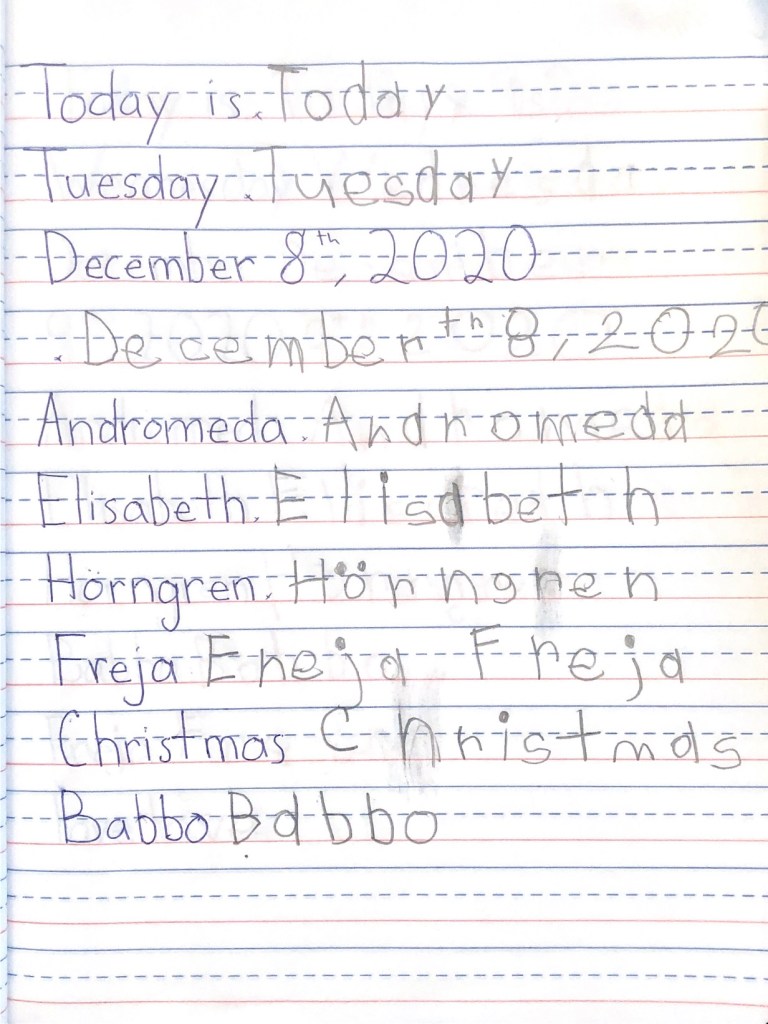 Today is. Today
Tuesday. Tuesday
December 8th, 2020
. December th 8, 2020
Andromeda. Andromeda
Elisabeth. Elisabeth
Hörngren. Hörngren
Freja Ereja Freja
Christmas Christmas
Babbo Babbo